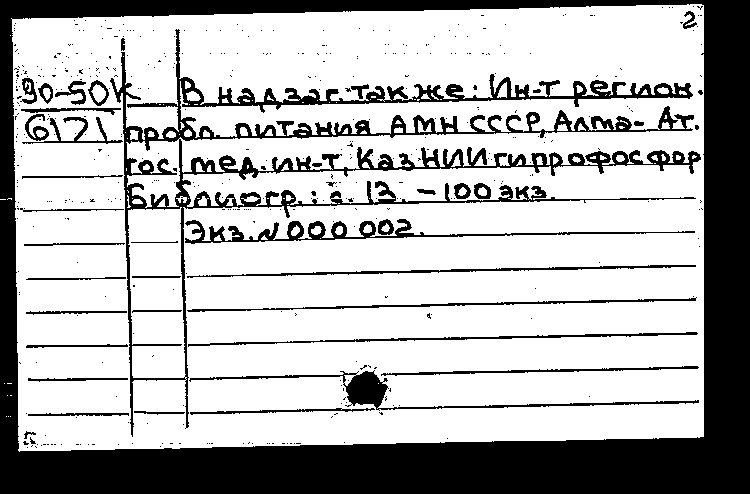 2
90-50К В надзаг. также: Ин-т регион.
6171 пробл. питания АМН СССР, Алма-Ат.
гос. мед. ин-т, КазНИИгипрофосфор
Библиогр.: с. 13. – 100 экз.
Экз. N 000 002.